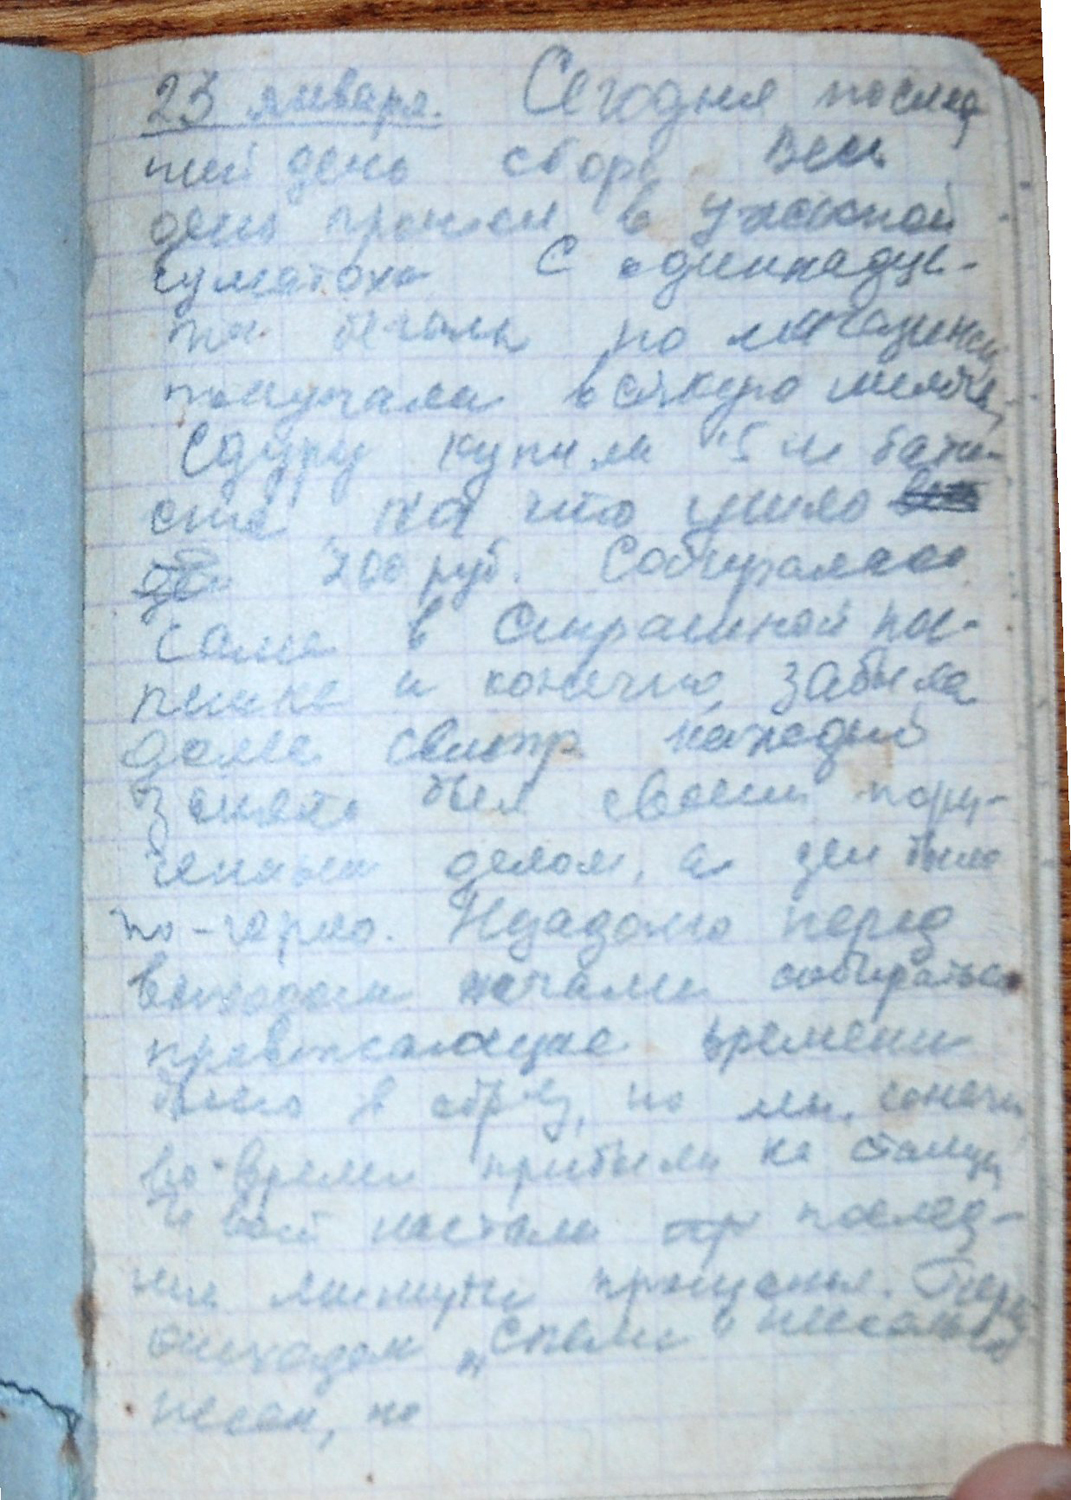 23 января. Сегодня послед
ний день сбора Весь
день прошел в ужасной
суматохе С одиннадца-
ти бегали по магазинам
получали всякую мелочь.
Сдуру купили 5 м бати-
ста, на что ушло
700 руб. Собиралась
сама в страшной по-
пешке и конечно забыла
дома свитр
Занят был своим пору-
ченным делом, а дел было
по-горло. Незадолго перед
выходом начали собираться
провожающие времени
было в обрез, но мы, конечн
во-время прибыли на станци
И вот настали пр послед-
ние минуты прощенья. Пере
отходом „Спели" несколько
песен, но